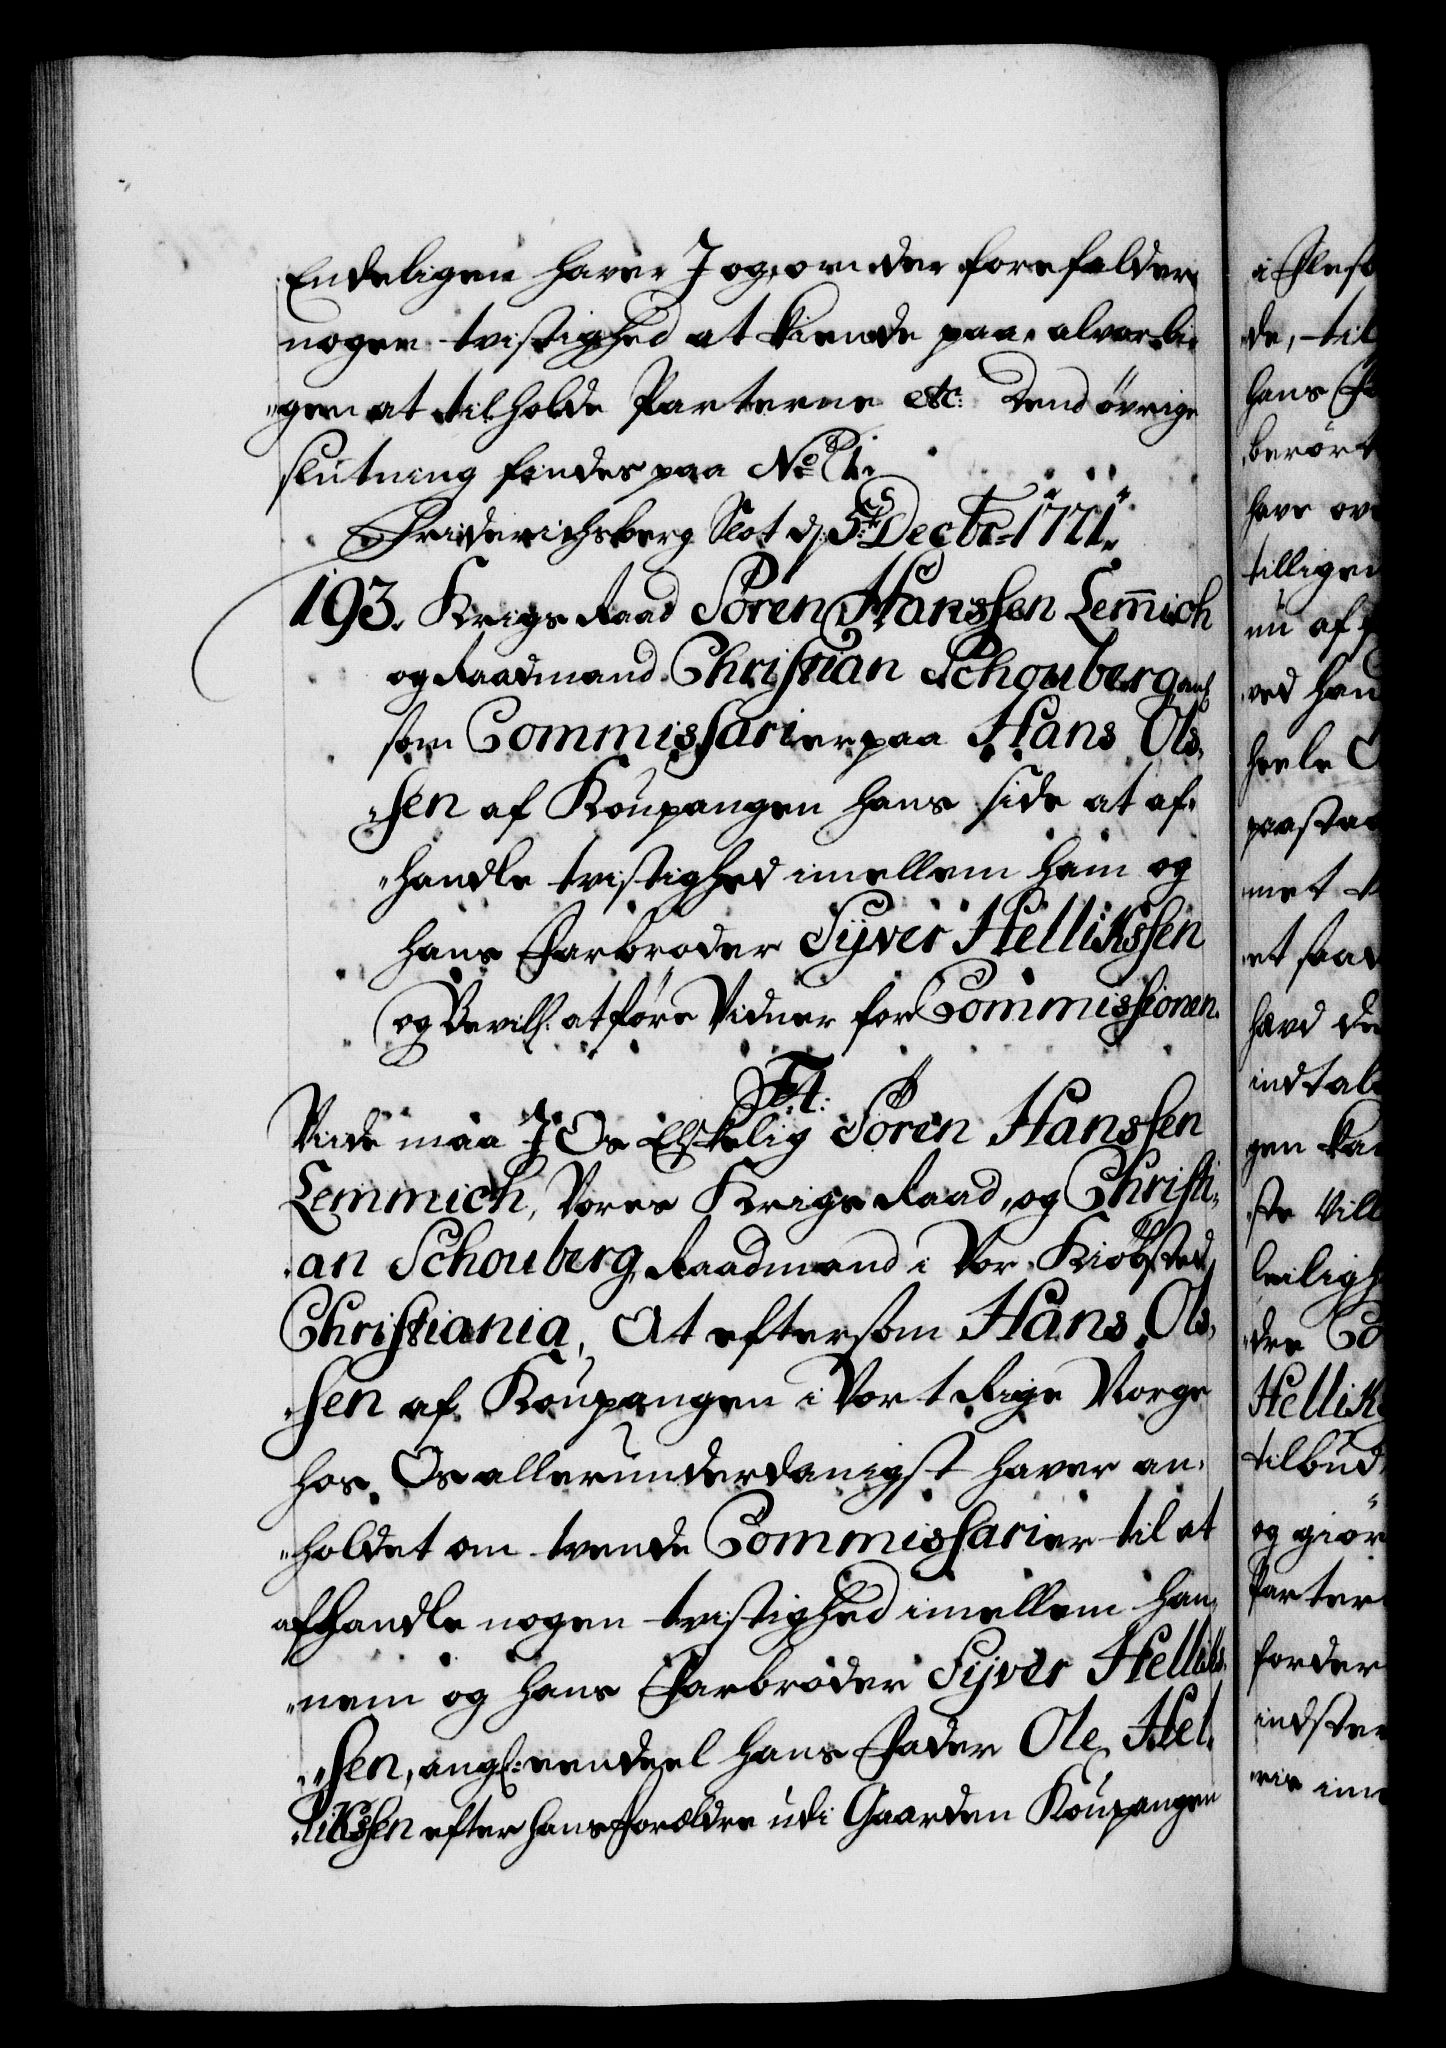 Endeligen haver I og, om der forefalder
nogen tvistighed at kiende paa, alvorli-
gen at tilholde Parterne etc: Dend övrige
slutning findes paa No 1.
Friderichsberg Slot d: 5te Decbr 1721.
193. Krigs Raad Sören Hanssen Lem̄ich
og Raadmand Christian Schouberg anl:
som Commissarier paa Hans Ols-
sen af Koupangen hans side at af-
handle tvistighed imellem ham og
hans Farbroder Syver Hellikssen
og Bevilg: at före Vidner for Commissionen.
F4:
Viide maa I Os Elskelig Sören Hanssen
Lemmich, Vores Krigs Raad, og Christi-
an Schouberg, Raadmand i Vor Kiöbsted
Christiania, At eftersom Hans Ols-
sen af Koupangen i Vort Rige Norge
hos Os allerunderdanigst haver an-
holdet om tvende Commissarier til at
afhandle nogen tvistighed imellem han-
nem og hans Farbroder Syver Helliks-
sen, angl: eendeel hans Fader Ole Hel-
likssen efter hans Forældre udi Gaarden Koupangen
i Flest
de, til
hans
berört
have ov
tilligem
nu af
ved han
heele
paastaa
met
et saad
havd de
indtal
gen kan
ste Vill
leiligh
dre Co
Hellik
tilbud
og giör
Parter
forder
indster
rie im